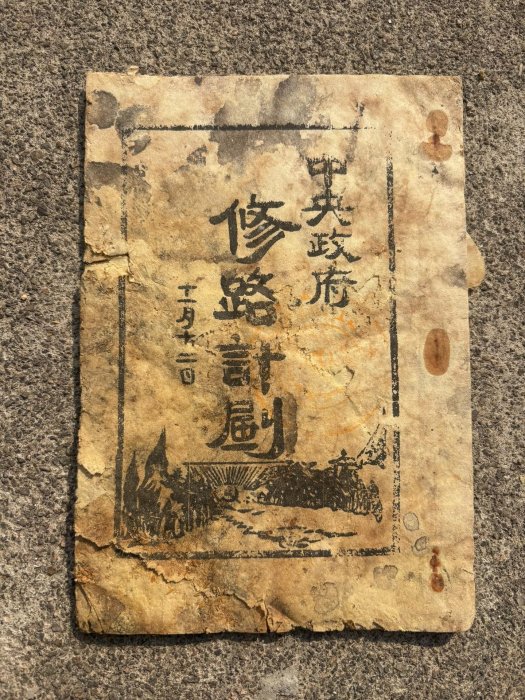 中央政府
修路計劃
十一月十二日